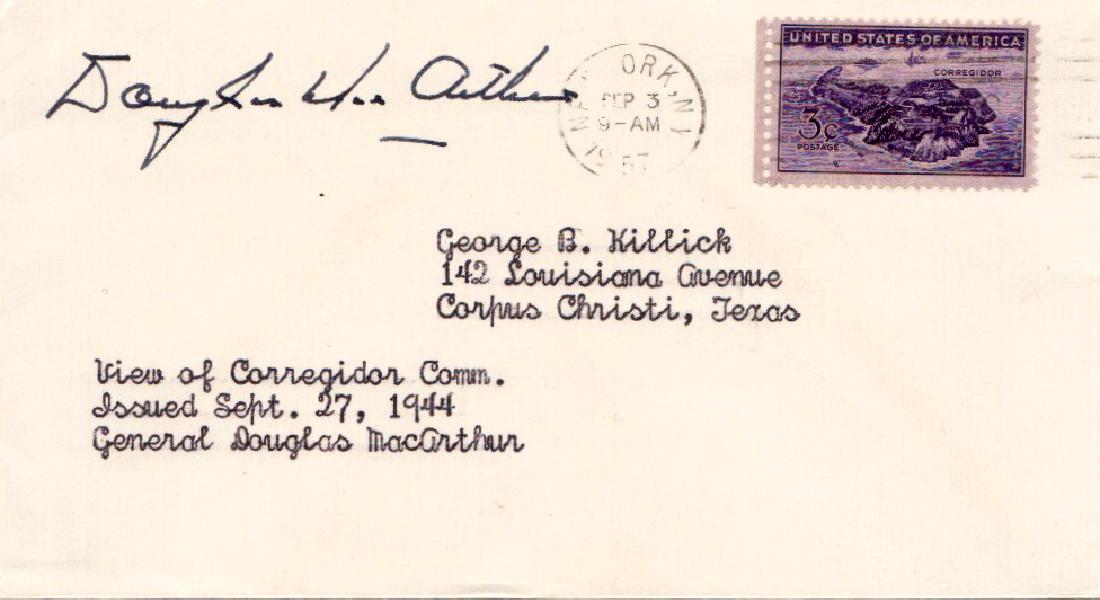 Douglas MacArthur
NEW YORK, N.Y.
SEP 3
9-AM
1957
UNITED STATES OF AMERICA
CORREGIDOR
3¢
POSTAGE
George B. Killick
142 Louisiana Avenue
Corpus Christi, Texas
View of Corregidor Comm.
Issued Sept. 27, 1944
General Douglas MacArthur